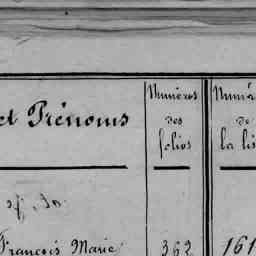 et Prénoms
Numéros
des
folios
Numér
de
la lis
François Marie
362
161